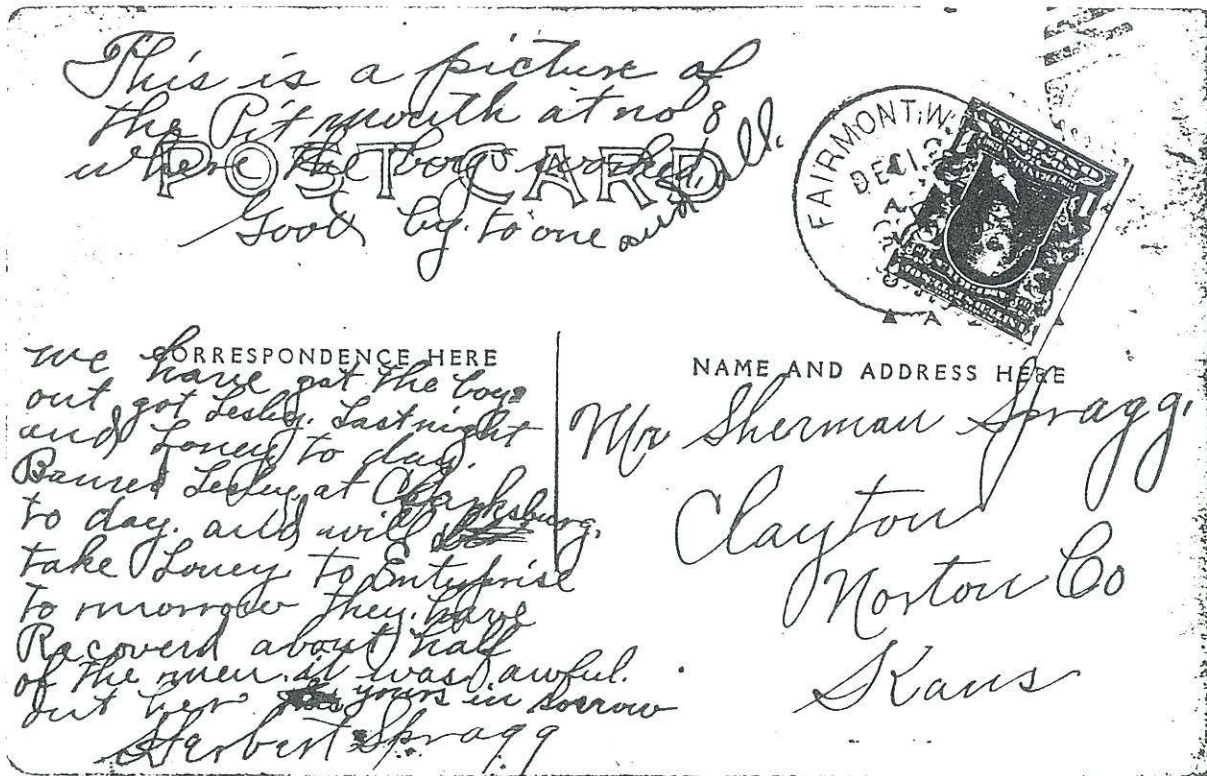 This is a picture of
the Pit mouth at no 8
where the boys worked.
POST CARD
Good by. to one and all.
FAIRMONT, W.
DEC 12
CORRESPONDENCE HERE
we have got the boys
out got Lesley. Last night
and Loney to day.
Buried Lesley at Clarksburg.
to day. and will
take Loney to Enterprise
to morrow they have
Recoverd about half
of the men. it was awful.
out her yours in sorrow
Herbert Spragg
NAME AND ADDRESS HERE
Mr Sherman Spragg,
Clayton
Norton Co
Kans